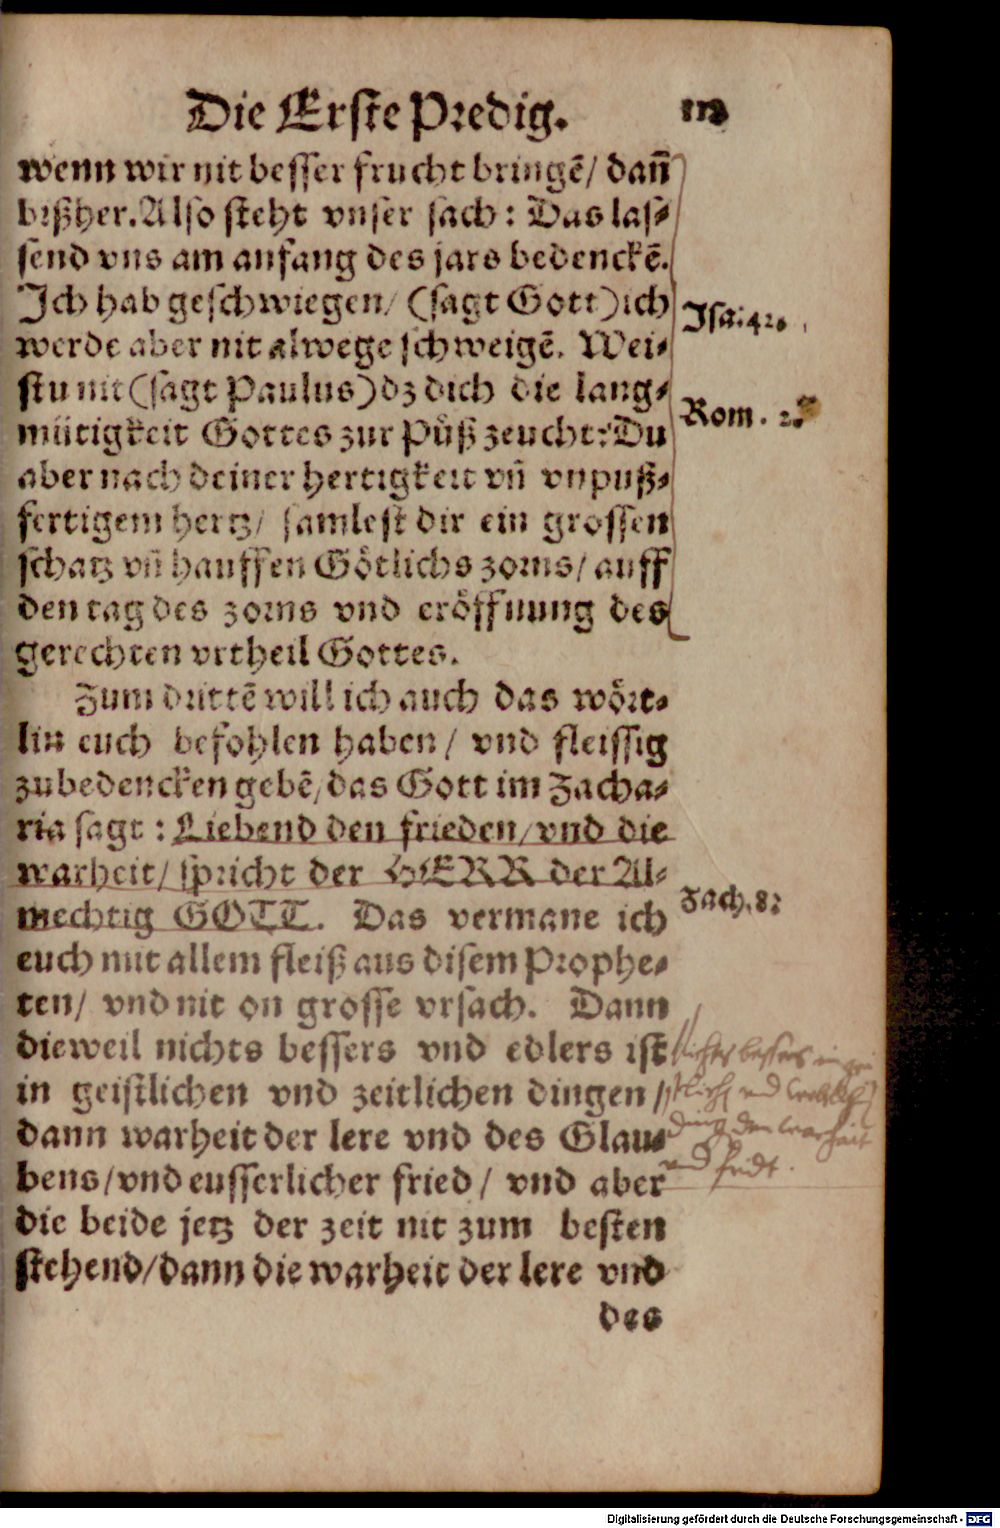 Die Erste Predig.
wenn wir nit besser frucht bringẽ/ dañ
bißher. Also steht vnser sach: Das las-
send vns am anfang des jars bedenckẽ.
Ich hab geschwiegen/ (sagt Gott) ich
Isa. 42.
werde aber nit alwege schweigẽ. Wei-
stu nit (sagt Paulus) dz dich die lang-
Rom. 2.
mütigkeit Gottes zur Půß zeucht: Du
aber nach deiner hertigkeit vñ vnpuß-
fertigem hertz/ samlest dir ein grossen
schatz vñ hauffen Götlichs zorns/ auff
den tag des zorns vnd eröffnung des
gerechten vrtheil Gottes.
Zum drittẽ will ich auch das wört-
lin euch befohlen haben/ vnd fleissig
zubedencken gebẽ/ das Gott im Zacha-
ria sagt: Liebend den frieden/ vnd die
warheit/ spricht der HERR der Al-
mechtig GOTT. Das vermane ich
Zach. 8:
euch mit allem fleiß aus disem Prophe-
ten/ vnd nit on grosse vrsach. Dann
dieweil nichts bessers vnd edlers ist
in geistlichen vnd zeitlichen dingen/
dann warheit der lere vnd des Glau-
bens/ vnd eusserlicher fried/ vnd aber
die beide jetz der zeit nit zum besten
stehend/ dann die warheit der lere vnd
des
nichts bessers in gei
stlich vnd
ding den warheit
vnd fridt.
Digitalisierung gefördert durch die Deutsche Forschungsgemeinschaft - DFG